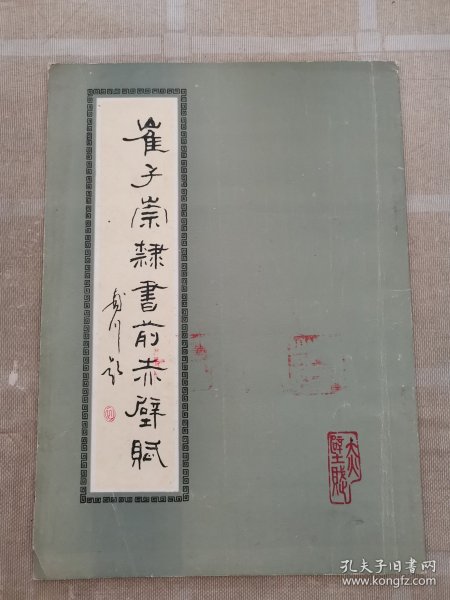 崔子崇隸書前赤壁賦
赤壁賦
孔夫子旧书网
www.kongfz.com